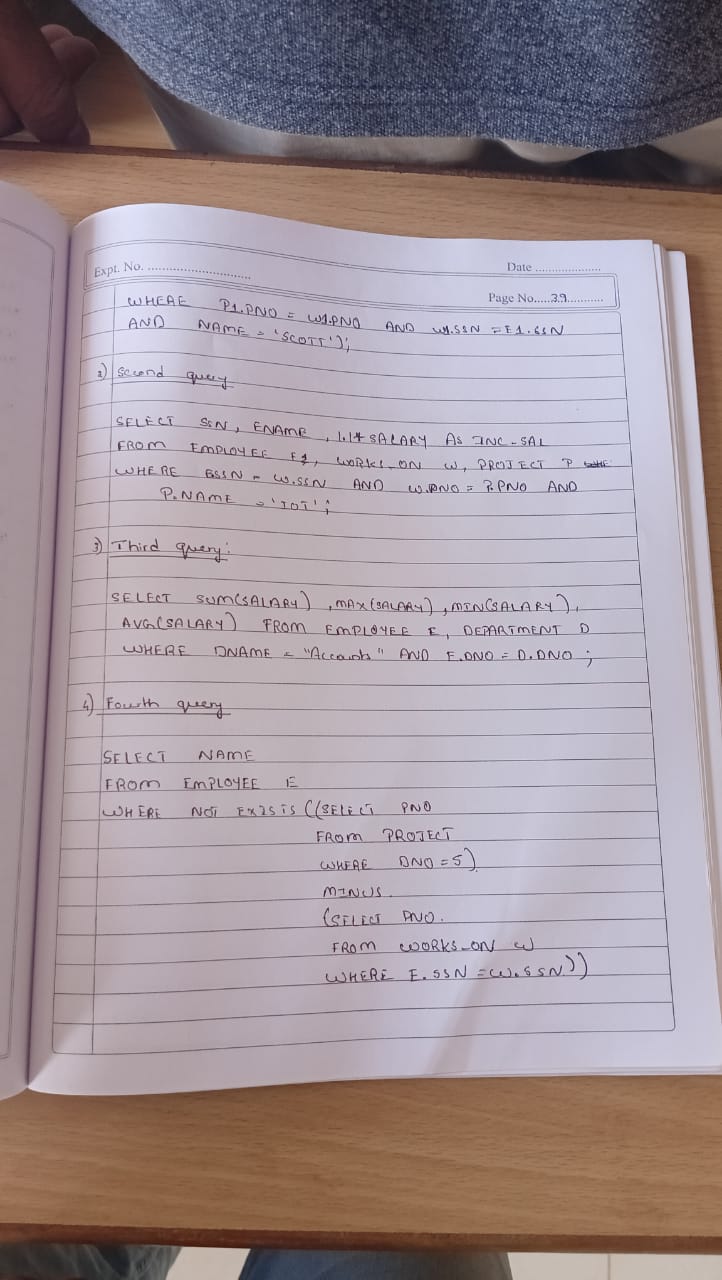 Expt. No. ............................
Date ....................
Page No.....39...........
WHERE P1.PNO = W1.PNO AND W1.SSN = E1.SSN
AND NAME = 'SCOTT');
2) Second query
SELECT SSN, ENAME, 1.1* SALARY AS INC-SAL
FROM EMPLOYEE E, WORKS_ON W, PROJECT P
WHERE W.SSN AND W.PNO = P.PNO AND
P.NAME = 'IOT';
3) Third query:
SELECT SUM(SALARY), MAX(SALARY), MIN(SALARY),
AVG(SALARY) FROM EMPLOYEE E, DEPARTMENT D
WHERE DNAME = "Accounts" AND E.DNO = D.DNO;
4) Fourth query
SELECT NAME
FROM EMPLOYEE E
WHERE NOT EXISTS ((SELECT PNO
FROM PROJECT
WHERE DNO=5)
MINUS.
(SELECT PNO.
FROM WORKS_ON W
WHERE E.SSN = W.SSN))